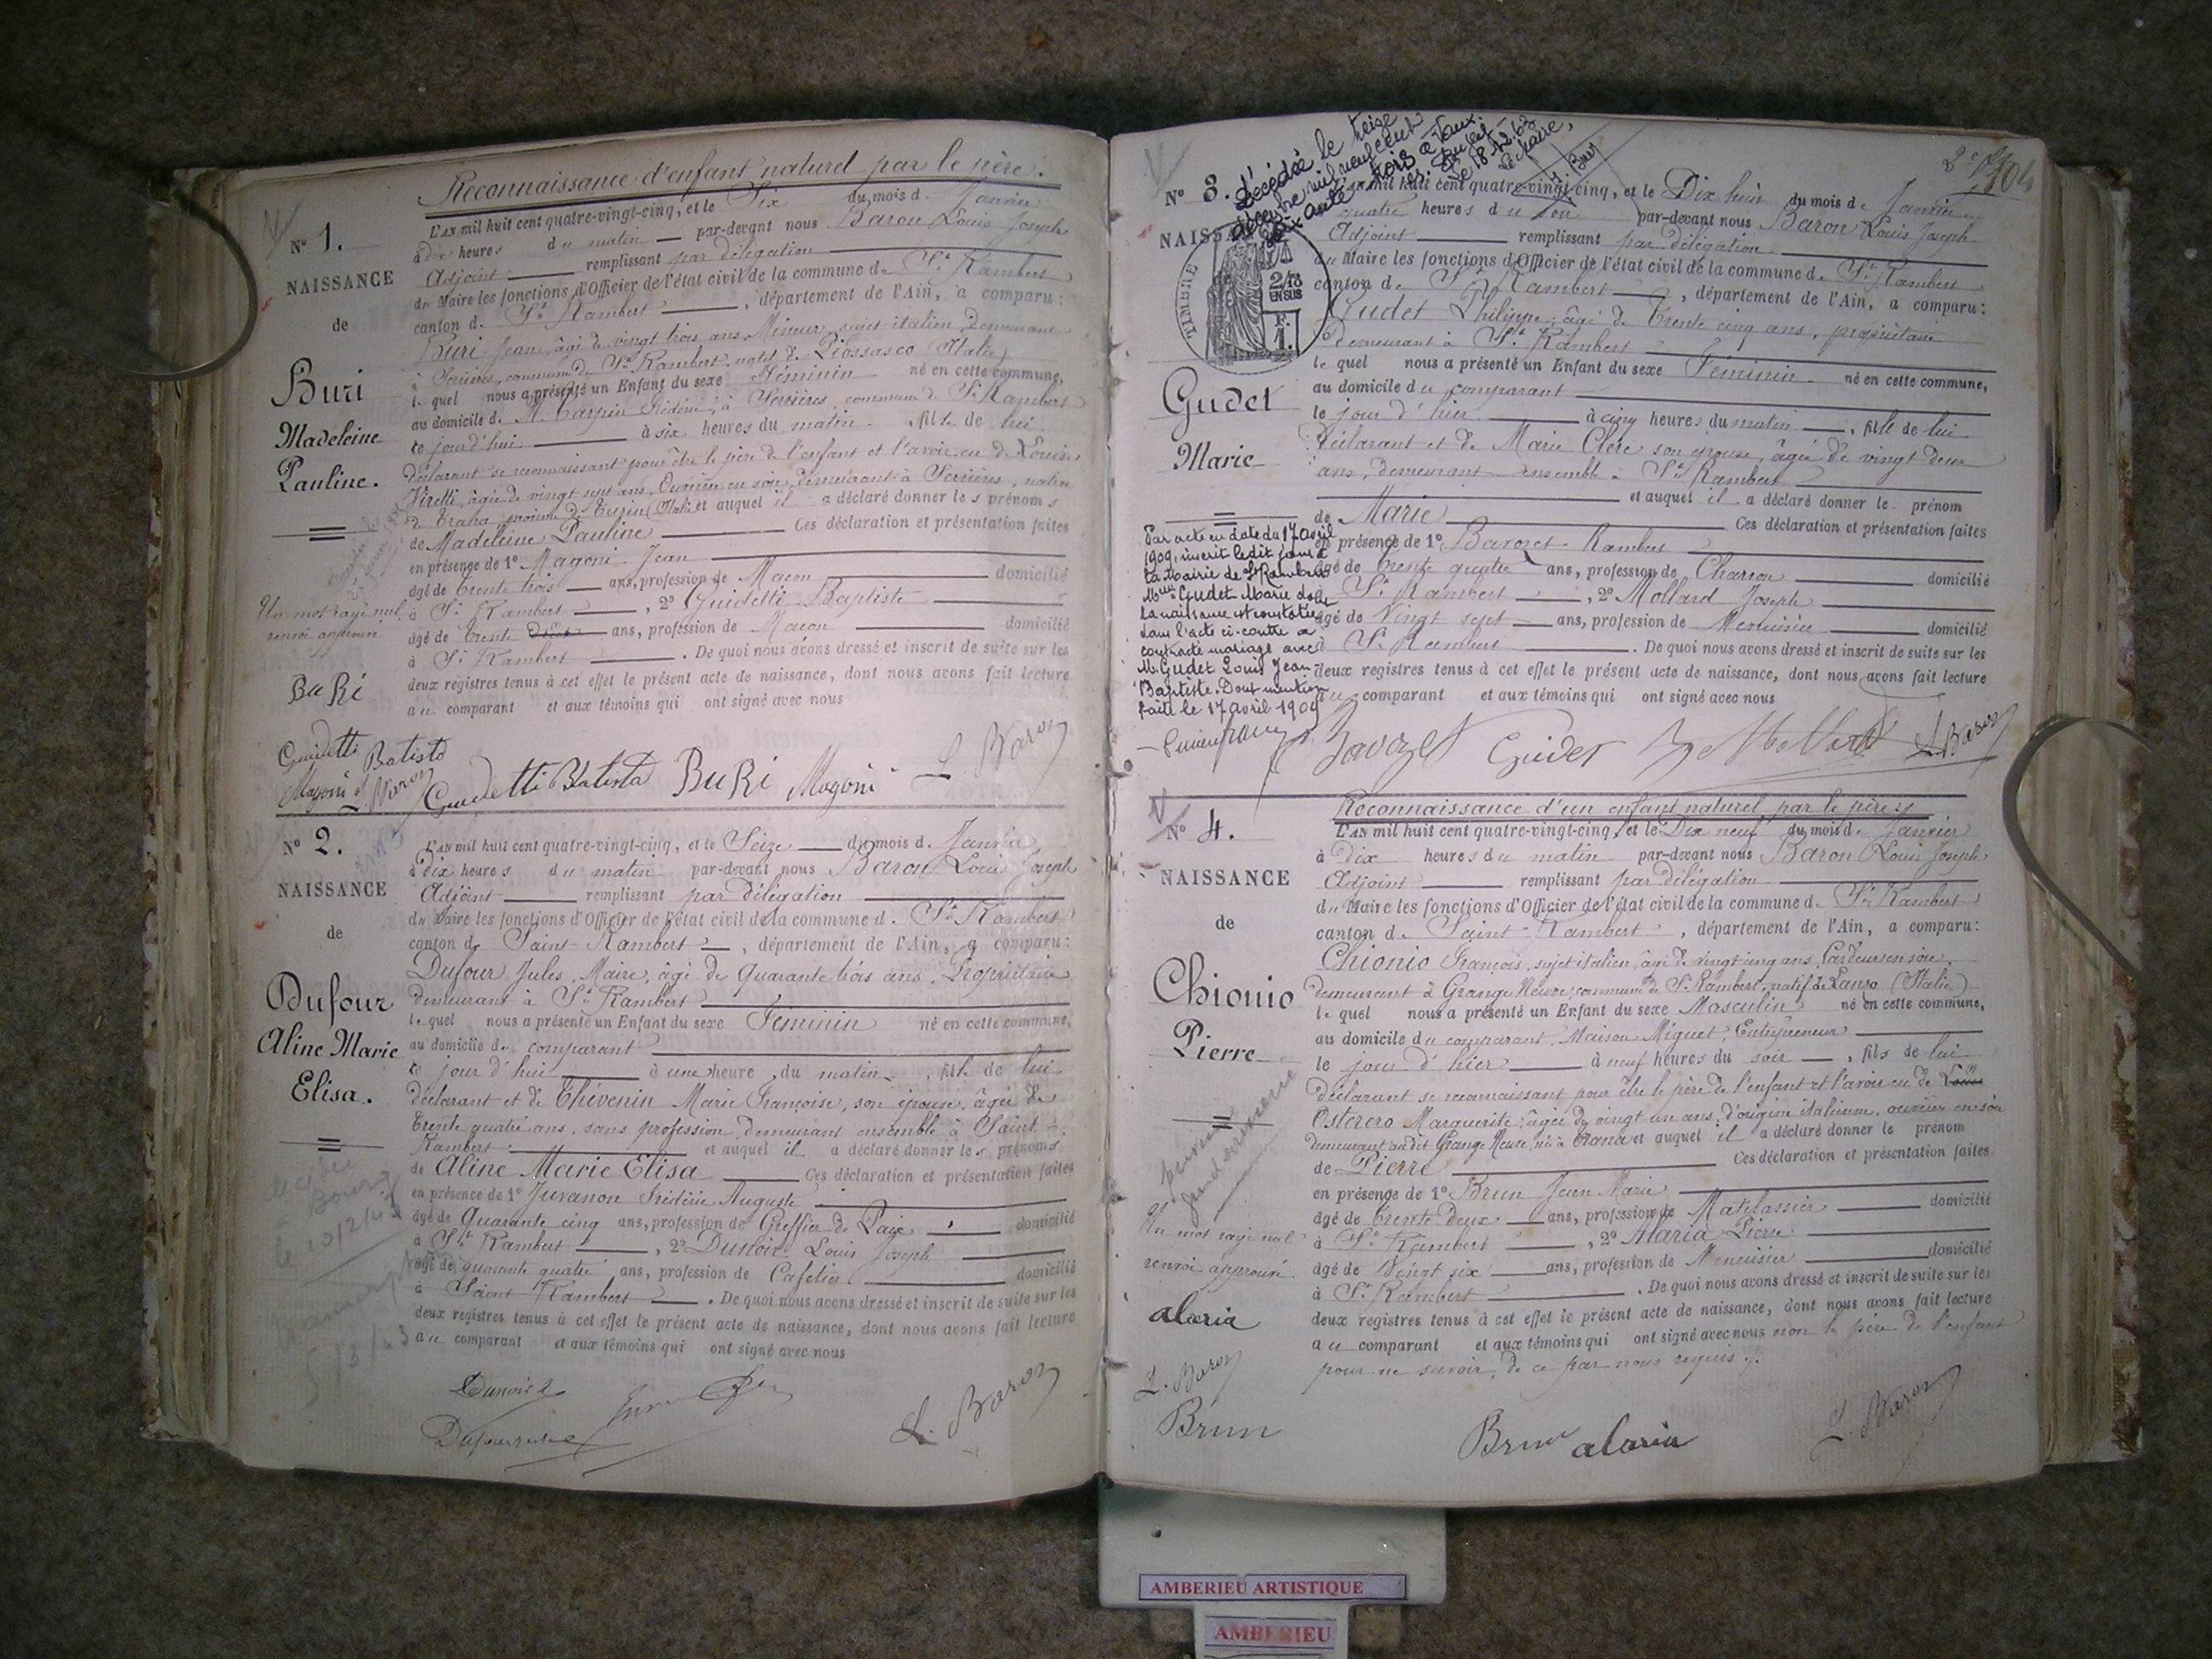 Reconnaissance d'enfant naturel par le père.
N° 1.
NAISSANCE
de
Buri
Madeleine
Pauline.
L'AN mil huit cent quatre-vingt-cinq, et le Six du mois de Janvier
à dix heures du matin par-devant nous Baron Louis Joseph
Adjoint remplissant par délégation
du Maire les fonctions d'Officier de l'état civil de la commune de St Rambert
canton de St Rambert, département de l'Ain, a comparu:
Buri Jean, âgé de vingt trois ans, Mineur, sujet italien, Demeurant
à Serrières, commune de St Rambert, natif de Piossasco (Italie)
lequel nous a présenté un Enfant du sexe Féminin né en cette commune,
au domicile de M. Frédéric, à Serrières, commune de St Rambert
ce jourd'hui à six heures du matin, fille de lui
déclarant se reconnaissant pour être le père de l'enfant et l'avoir eu de Louise
âgée de vingt sept ans, Ouvrière en soie, demeurant à Serrières, native
de Trana, province de Turin (Italie) et auquel il a déclaré donner les prénoms
de Madeleine Pauline Ces déclaration et présentation faites
en présence de 1° Magoni Jean
âgé de trente trois ans, profession de Maçon domicilié
à St Rambert, 2° Guidetti Baptiste
âgé de trente ans, profession de Maçon domicilié
à St Rambert. De quoi nous avons dressé et inscrit de suite sur les
deux registres tenus à cet effet le présent acte de naissance, dont nous avons fait lecture
au comparant et aux témoins qui ont signé avec nous
Un mot rayé nul
renvoi approuvé
BuRi
Guidetti Batista
Magoni L. Baron
Guidetti Batista BuRi Magoni L. Baron
N° 2.
NAISSANCE
de
Dufour
Aline Marie
Elisa.
L'AN mil huit cent quatre-vingt-cinq, et le Seize du mois de Janvier
à dix heures du matin par-devant nous Baron Louis Joseph
Adjoint remplissant par délégation
du Maire les fonctions d'Officier de l'état civil de la commune de St Rambert
canton de Saint Rambert, département de l'Ain, a comparu:
Dufour Jules, Maire, âgé de Quarante trois ans, Propriétaire
demeurant à St Rambert
lequel nous a présenté un Enfant du sexe Féminin né en cette commune,
au domicile du comparant
ce jour d'hui à une heure du matin, fille de lui
déclarant et de Thévenin Marie Françoise, son épouse, âgée de
trente quatre ans, sans profession, demeurant ensemble à Saint
Rambert et auquel il a déclaré donner les prénoms
de Aline Marie Elisa Ces déclaration et présentation faites
en présence de 1° Juvanon Frédéric Auguste
âgé de Quarante cinq ans, profession de Greffier de Paix domicilié
à St Rambert, 2° Dunoir Louis Joseph
âgé de quarante quatre ans, profession de Cafetier domicilié
à Saint Rambert. De quoi nous avons dressé et inscrit de suite sur les
deux registres tenus à cet effet le présent acte de naissance, dont nous avons fait lecture
au comparant et aux témoins qui ont signé avec nous
L. Baron
N° 3.
Décédée le treize
décembre mil neuf cent
soixante trois à
le 18.12.63
NAISSANCE
TIMBRE
2/10
EN SUS
Gudet
Marie
L'AN mil huit cent quatre-vingt-cinq, et le Dix huit du mois de Janvier
quatre heures du soir par-devant nous Baron Louis Joseph
Adjoint remplissant par délégation
du Maire les fonctions d'Officier de l'état civil de la commune de St Rambert
canton de St Rambert, département de l'Ain, a comparu:
Gudet Philippe, âgé de trente cinq ans, propriétaire
demeurant à St Rambert
lequel nous a présenté un Enfant du sexe Féminin né en cette commune,
au domicile du comparant
le jour d'hier à cinq heures du matin, fille de lui
déclarant et de Marie Clere son épouse, âgée de vingt deux
ans, demeurant ensemble à St Rambert
et auquel il a déclaré donner le prénom
de Marie Ces déclaration et présentation faites
en présence de 1° Bavozet Rambert
âgé de trente quatre ans, profession de Charron domicilié
à St Rambert, 2° Mollard Joseph
âgé de Vingt sept ans, profession de Menuisier domicilié
à St Rambert. De quoi nous avons dressé et inscrit de suite sur les
deux registres tenus à cet effet le présent acte de naissance, dont nous avons fait lecture
au comparant et aux témoins qui ont signé avec nous
Par acte en date du 17 avril
1909, inscrit ledit jour à
la Mairie de St Rambert
Gudet Marie dont
la naissance est constatée
dans l'acte ci-contre a
contracté mariage avec
M. Gudet Louis Jean
Baptiste. Dont mention
faite le 17 avril 1909
Bavozet Gudet Mollard L. Baron
Reconnaissance d'un enfant naturel par le père
N° 4.
NAISSANCE
de
Chionio
Pierre
L'AN mil huit cent quatre-vingt-cinq, et le Dix neuf du mois de Janvier
à dix heures du matin par-devant nous Baron Louis Joseph
Adjoint remplissant par délégation
du Maire les fonctions d'Officier de l'état civil de la commune de St Rambert
canton de Saint-Rambert, département de l'Ain, a comparu:
Chionio François, sujet italien, âgé de vingt cinq ans, Cardeur en soie,
demeurant à Grange Neuve, commune de St Rambert, natif de Lanzo (Italie)
lequel nous a présenté un Enfant du sexe Masculin né en cette commune,
au domicile du comparant, Maison Miguet, Entrepreneur
le jour d'hier à neuf heures du soir, fils de lui
déclarant se reconnaissant pour être le père de l'enfant et l'avoir eu de
Osterero Marguerite, âgée de vingt un ans, d'origine italienne, ouvrière en soie
demeurant audit Grange Neuve, née à Trana et auquel il a déclaré donner le prénom
de Pierre Ces déclaration et présentation faites
en présence de 1° Brun Jean Marie
âgé de trente deux ans, profession de Matelassier domicilié
à St Rambert, 2° Alaria Pierre
âgé de Vingt six ans, profession de Menuisier domicilié
à St Rambert. De quoi nous avons dressé et inscrit de suite sur les
deux registres tenus à cet effet le présent acte de naissance, dont nous avons fait lecture
au comparant et aux témoins qui ont signé avec nous non le père de l'enfant
pour ne savoir, de ce par nous requis.
Un mot rayé nul
renvoi approuvé
alaria
L. Baron
Brun
Brun alaria L. Baron
AMBERIEU ARTISTIQUE
AMBERIEU